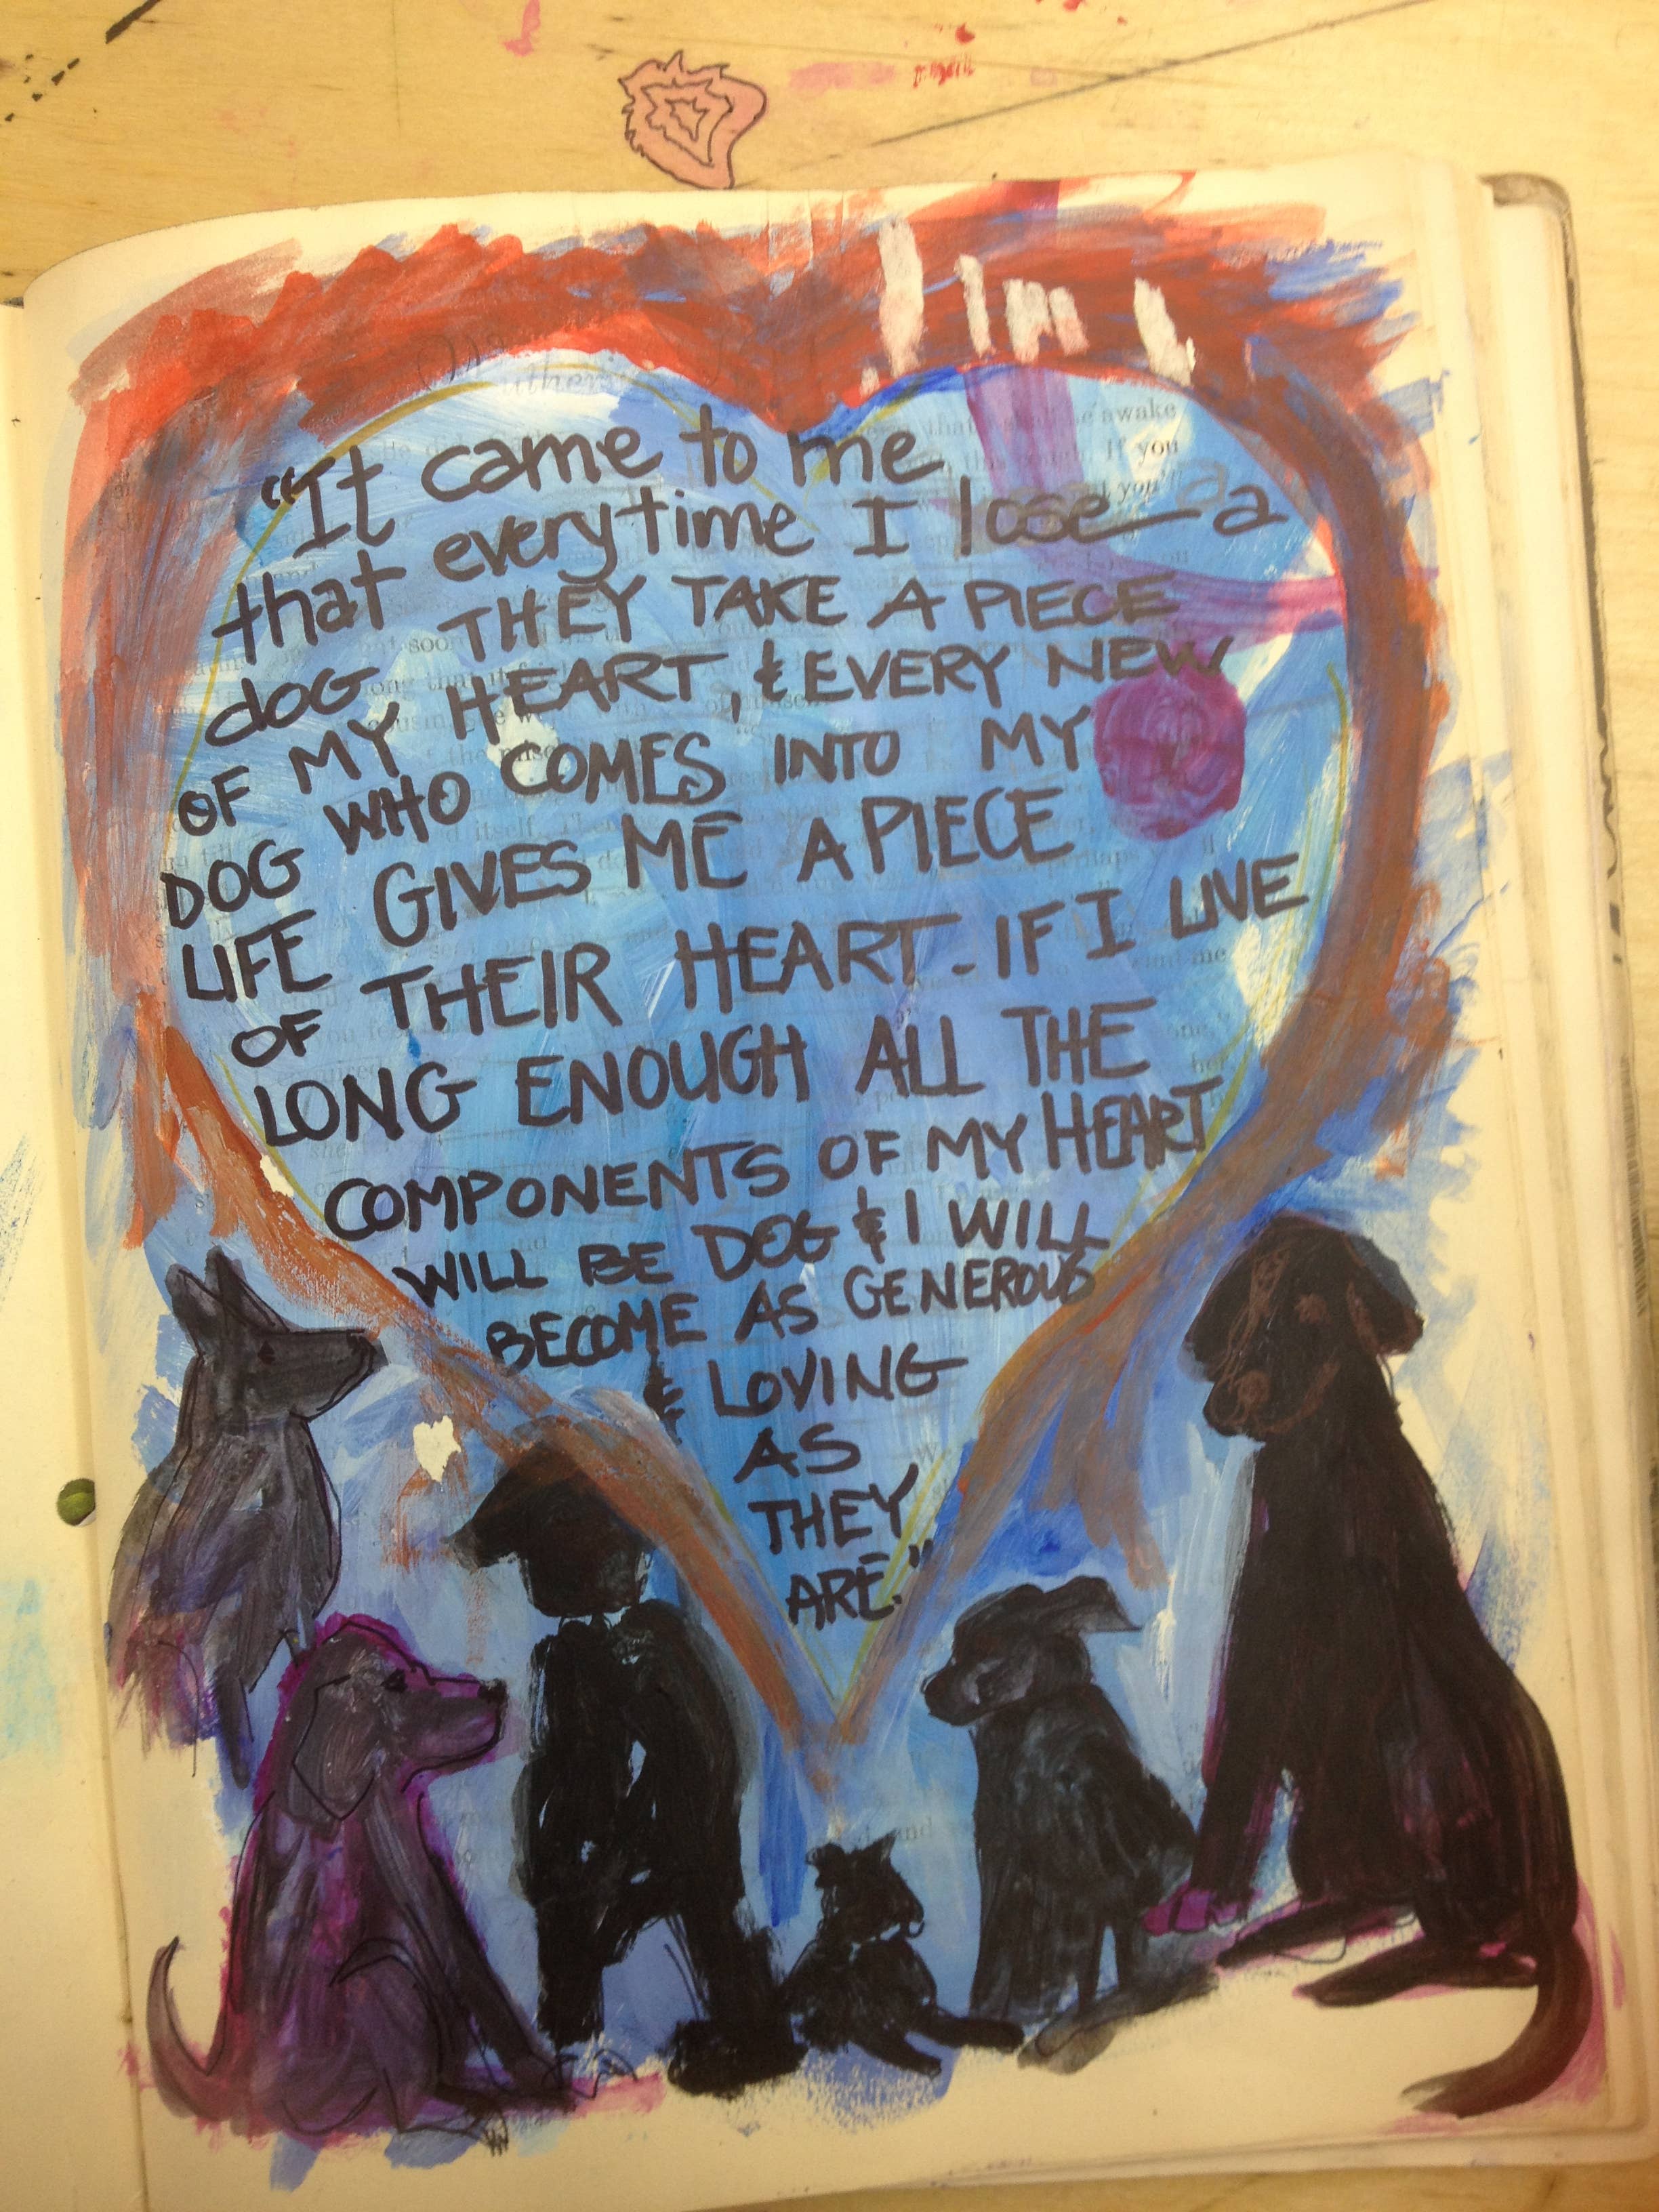 "It came to me
awake
If you
that everytime I lose a a
dOG THEY TAKE A PIECE
soon
OF MY HEART, & EVERY NEW
DOG WHO COMES INTO MY
LIFE GIVES ME A PIECE
itself
perhaps
OF THEIR HEART. IF I LIVE
me
LONG ENOUGH ALL THE
COMPONENTS OF MY HEART
WILL BE DOG & I WILL
BECOME AS GENEROUS
& LOVING
AS
THEY
ARE."